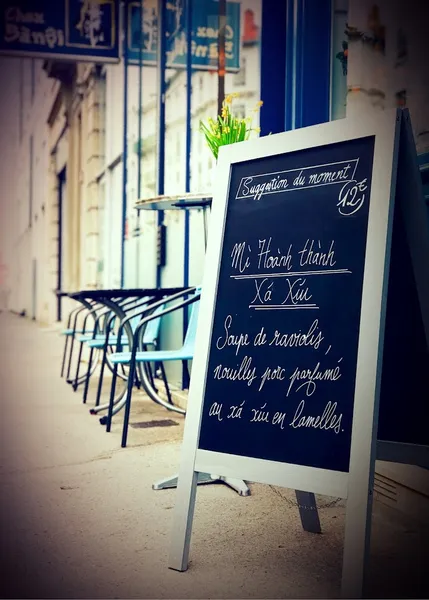 Chez
Bangi
Chez
Bangi
Suggestion du moment
12€
Mì Hoành thành
Xá Xíu
Soupe de raviolis,
nouilles, porc parfumé
au xá xíu en lamelles.